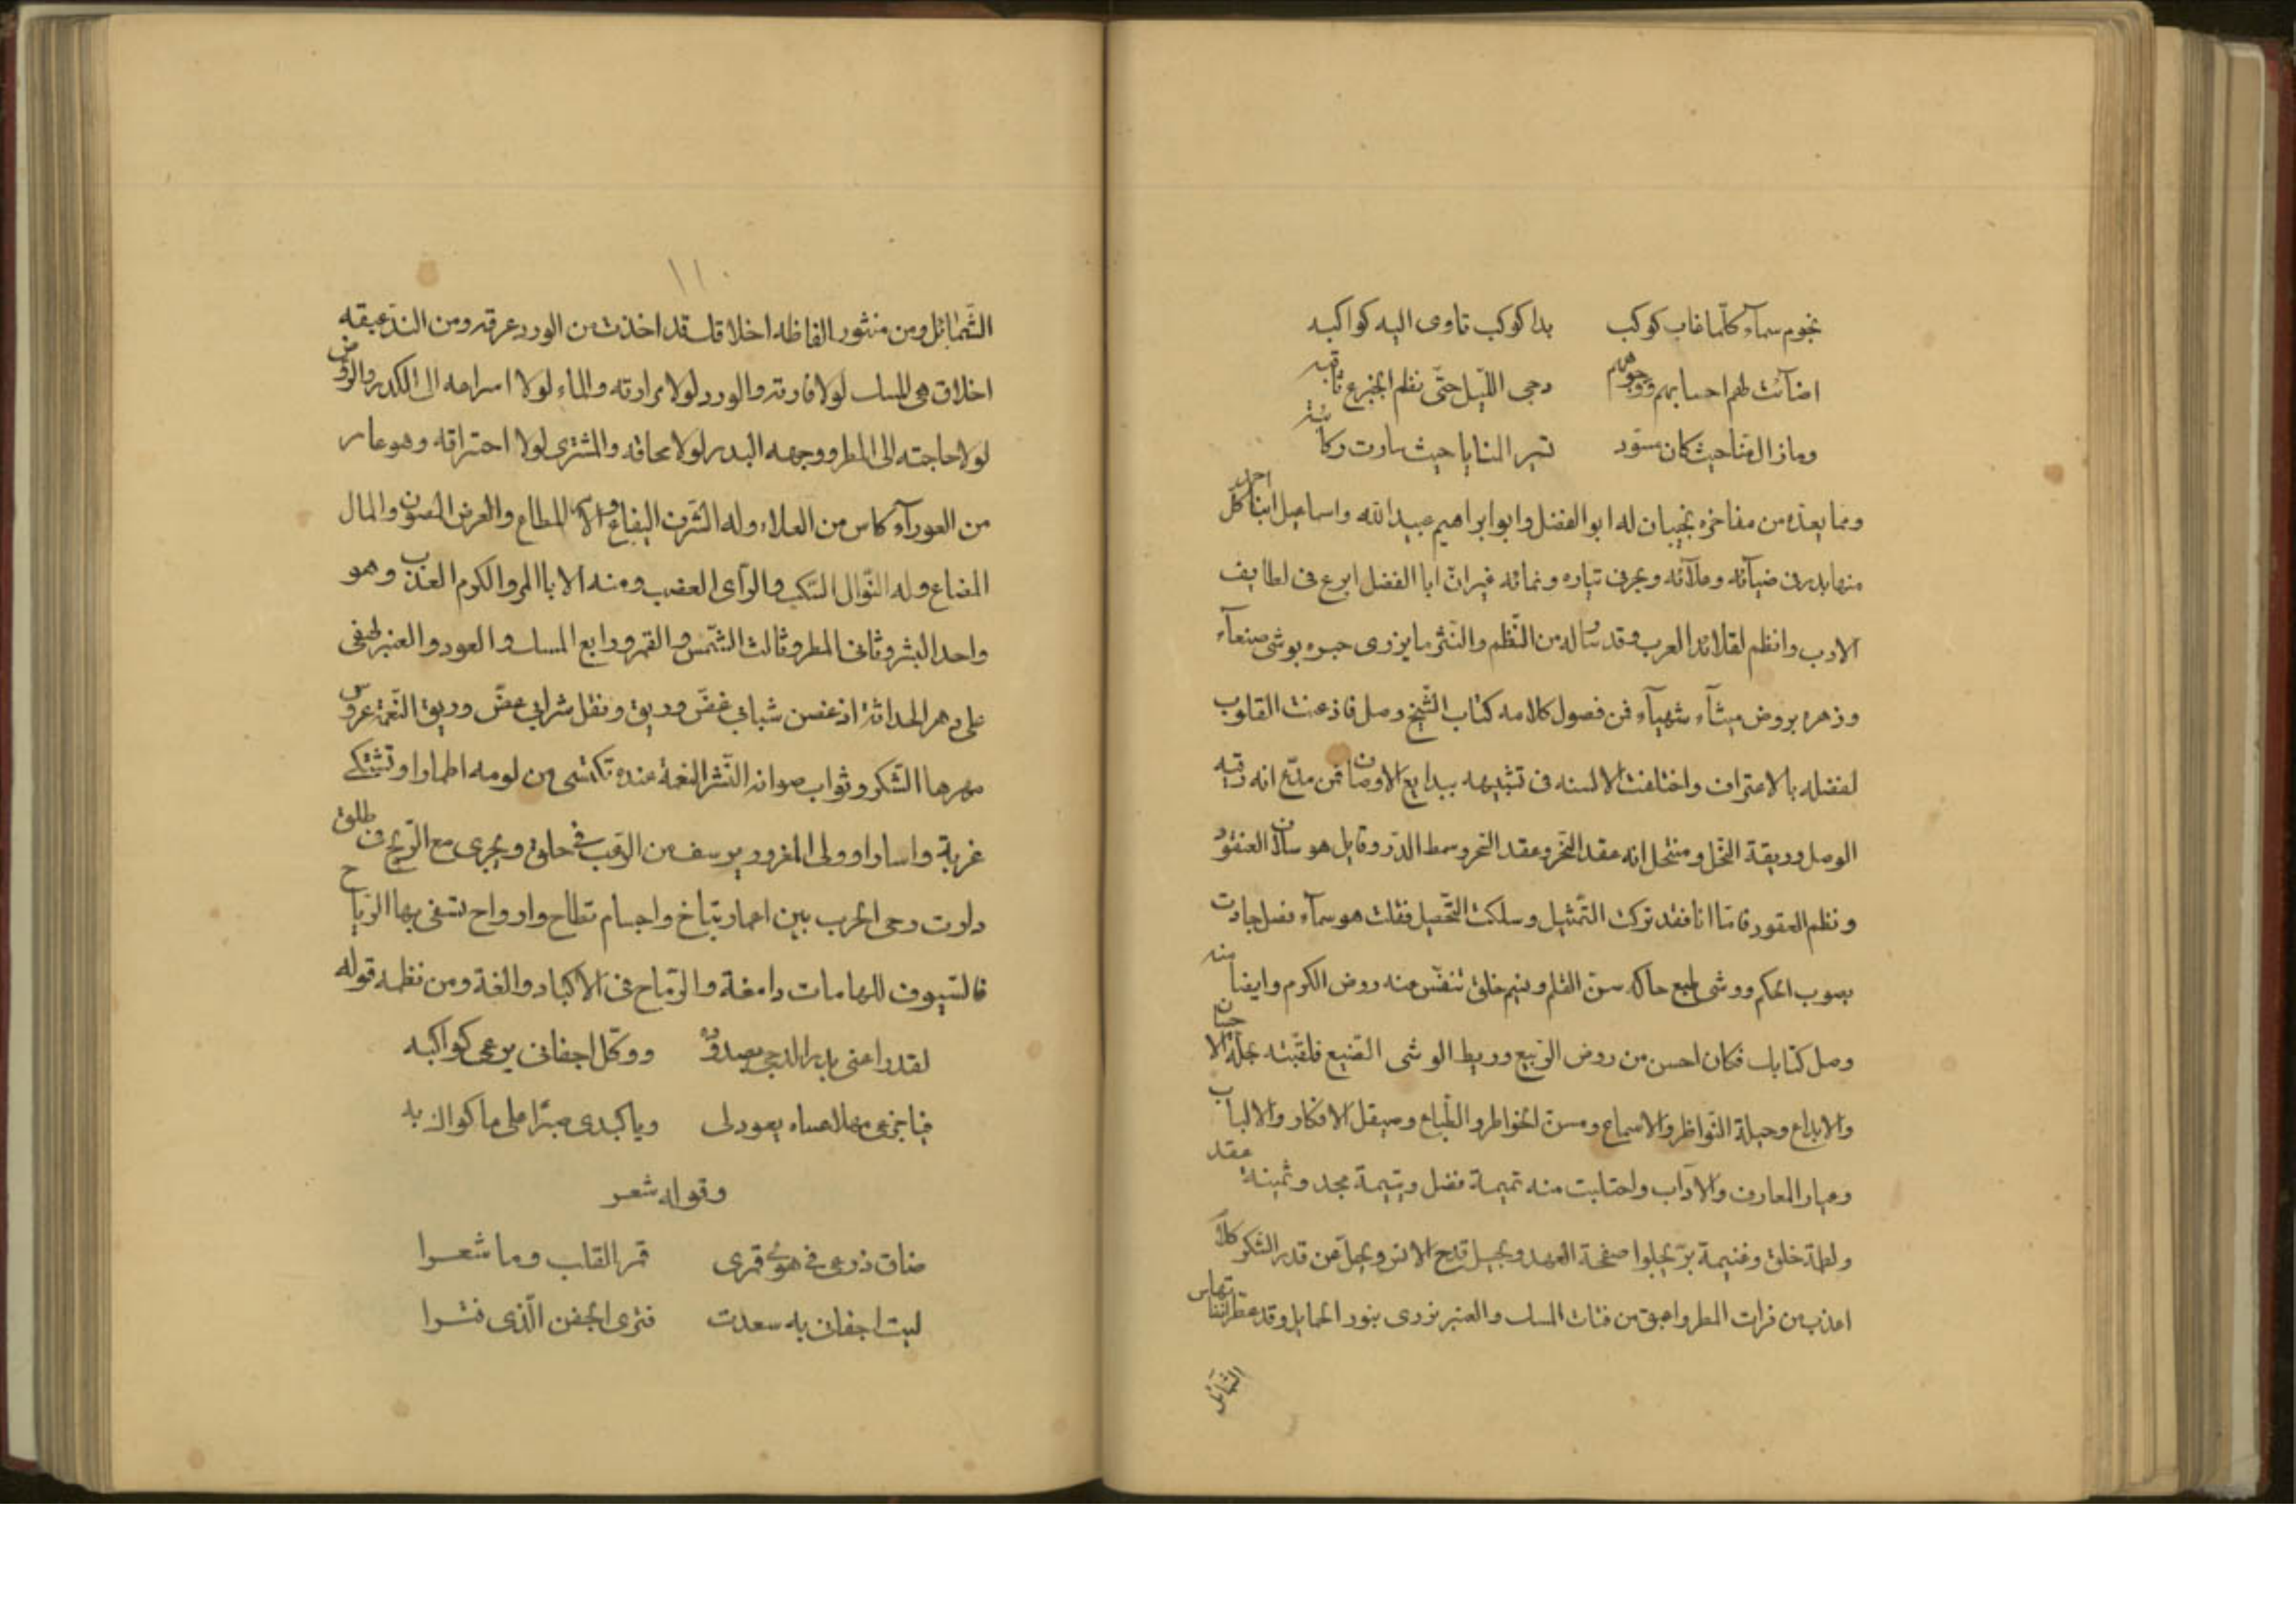 نجوم سماء كلّما غاب كوكب بدا كوكب تاوى اليه كواكبه
اضآئت لهم احسابهم ووجوههم دجى اللّيل حتّى نظم الجزع ثاقبه
وما زال منّا حيث كان مسوّد تسير المنايا حيث سارت ركائبه
ومما يعدّ من مفاخره نجيبان له ابو الفضل وابو ابراهيم عبيد الله واسماعيل ابنا احمد كلّ
منها بدر فى ضيآئه وملآئه وبحر فى تياره ونمائه غير انّ ابا الفضل ابرع فى لطايف
الادب وانظم لقلائد العرب وقد رسا له من النّظم والنّثر ما يزرى حبره بوشى صنعآء
وزهره بروض ميثآء شهبآء فمن فصول كلامه كتاب الشّيخ وصل فاذعنت القلوب
لفضله بالاعتراف واختلفت الالسنه فى تشبيهه ببدايع الاوصاف فمن مدّع انه رقيه
الوصل وريقة النّحل ومنتحل انه عقد النّحر وعقد السّحر وسمط الدرّ وقايل هو سلاف العنقود
ونظم العقود فامّا انا فقد تركت التّمثيل وسلكت التّحصيل فقلت هو سمآء فضل جادت
بصوب الحكم ووشى طبع حاكه سنّ القلم ونسيم خلق تنفّس عنه روض الكرم وايضا منه
وصل كتابك فكان احسن من روض الرّبيع وريط الوشى الصّنيع فلقّبته بجلّة الاحسان
والابداع وحيلة النّواظر والاسماع ومسنّ الخواطر والطّباع وصيقل الافكار والالباب
وعيار المعارف والآداب واحتلبت منه تميمة فضل ويتيمة مجد وثمينة عقد
ولطيمة خلق وغنيمة برّ يجلوا صفحة العهد ويجيل قدح الانس ويجلّ عن قدر الشكر كلاما
اعذب من فرات المطر واعبق من فتات المسك والعنبر يزرى بنور الخمايل وقد عطّرتها انفاس
الشّمائل
١١٠
الشّمائل ومن منثور الفاظه اخلاقك قد اخذت من الورد عرقه ومن الندّ عبقه
اخلاق هى المسك لولا فارته والورد لولا مرارته والماء لولا اسراعه الى الكدر والرّوض
لولا حاجته الى المطر ووجهه البدر لولا محاقه والمشترى لولا احتراقه وهو عار
من العورآء كاس من العلاء وله الشّرف اليفاع والامر المطاع والعرض المصون والمال
المضاع وله النّوال السّكب والرّأى العضب ومنه الابا المرّ والكرم العذب وهو
واحد البشر وثانى المطر وثالث الشّمس والقمر ورابع المسك والعود والعنبر لهفى
على دهر الحداثة اذ غصن شبابى غضّ وريق ونقل شرابى عضّ وريق النّعمة عروس
مهرها الشّكر وثواب صوانه النّشر النعمة عنده تكتسى من لومه اطمارا وتشتكى
غربة واسارا وولى المغرور يرسف من الرّعب فى حلق ويجرى مع الرّيح فى طلق
دارت رحى الحرب بين اعمار تباح واجسام تطاح وارواح تسفى بها الرّياح
فالسّيوف للهامات دامغة والرّماح فى الاكباد والغة ومن نظمه قوله
لقد راعنى بدر الدجى بصدوده ووكّل اجفانى يرعى كواكبه
فيا جزعى مهلا عساه يعود لى ويا كبدى صبرا على ما كواك به
وقوله شعر
ضاق ذرعى فى هوى قمرى قمر القلب وما شعرا
ليت اجفانى به سعدت فترى الجفن الّذى فترا